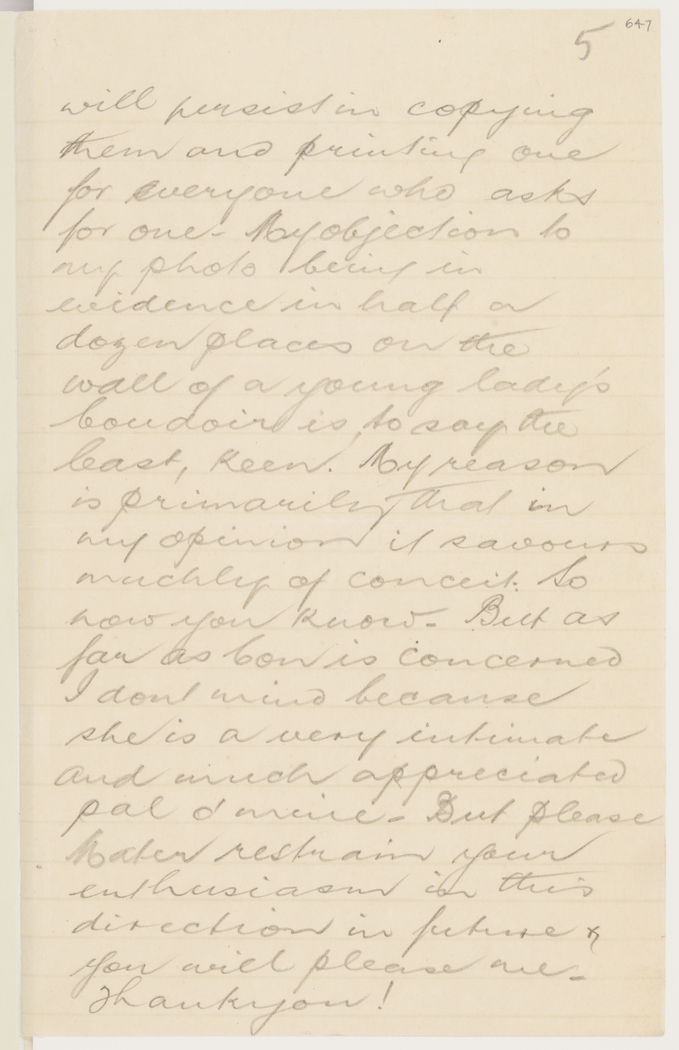 5
647
will persist in copying
them and printing one
for everyone who asks
for one - My objection to
my photo being in
evidence in half a
dozen places on the
wall of a young lady's
boudoir is, to say the
least, keen. My reason
is primarily that in
my opinion it savours
muchly of conceit. So
now you know - But as
far as Con is concerned
I dont mind because
she is a very intimate
and much appreciated
pal o' mine - But please
Mater restrain your
enthusiasm in this
direction in future &
you will please me -
Thankyou!